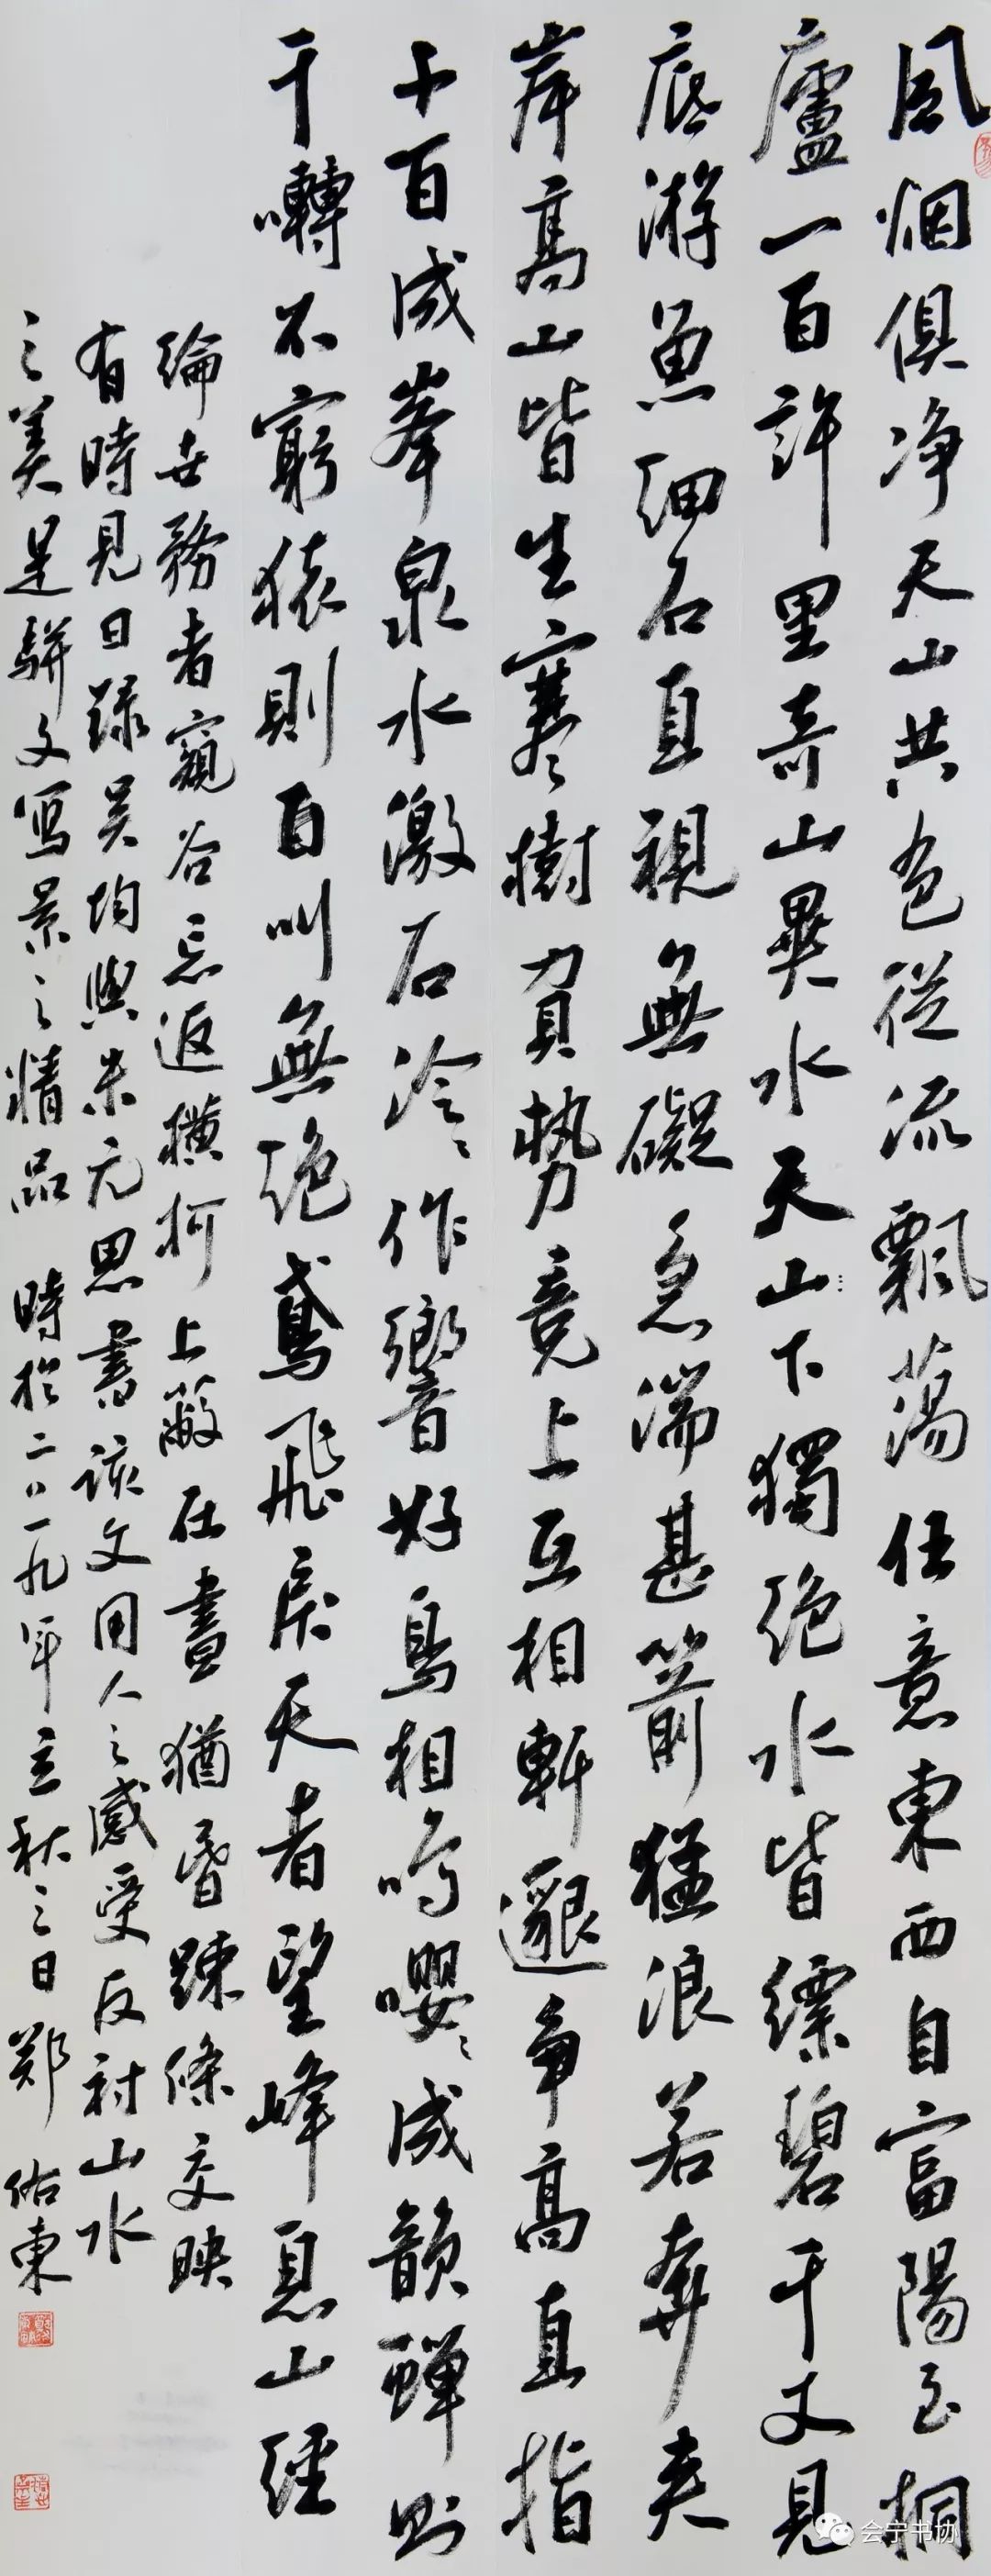 風烟俱净天山共色從流飄蕩任意東西自富陽至桐
廬一百許里奇山異水天山下獨絶水皆縹碧千丈見
底游魚細石直視無礙急湍甚箭猛浪若奔夹
岸高山皆生寒樹負勢競上互相軒邈争高直指
千百成峯泉水激石泠〻作響好鳥相鳴嚶〻成韻蟬則
千囀不窮猿則百叫無絶鳶飛戾天者望峰息山經
綸世務者窺谷忘返橫柯上蔽在晝猶昏踈條交映
有時見日録吴均與朱元思書該文用人之感受反衬山水
之美是駢文写景之精品 時於二〇一九年立秋之日鄭佑東
会宁书协